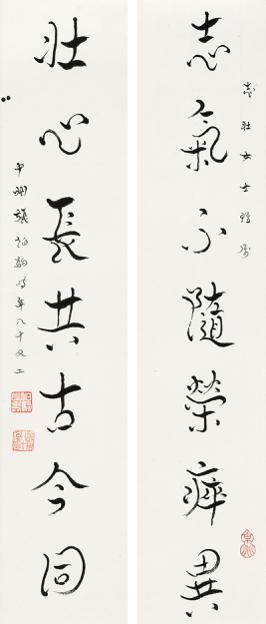 志壯女士雅屬
志氣不隨榮瘁異
壯心長共古今同
中州張伯駒時年八十又